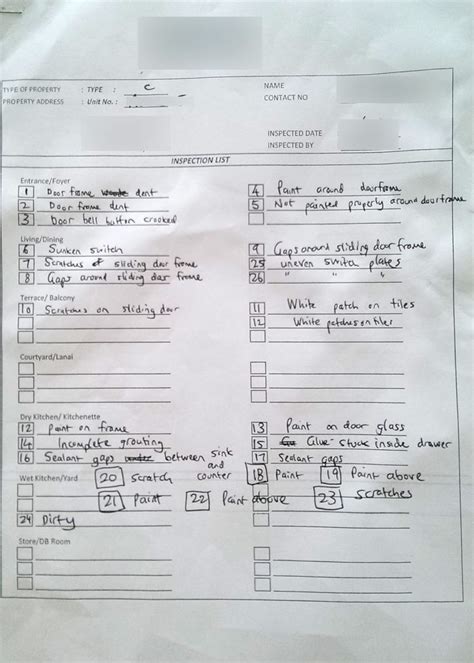 TYPE OF PROPERTY : TYPE : C NAME
PROPERTY ADDRESS : Unit No. : CONTACT NO
INSPECTED DATE
INSPECTED BY :
INSPECTION LIST
Entrance/Foyer
1 Door frame dent
2 Door frame dent
3 Door bell button crooked
4 Paint around doorframe
5 Not painted properly around doorframe
Living/Dining
6 Sunken switch
7 Scratches of sliding door frame
8 Gaps around sliding door frame
9 Gaps around sliding door frame
25 uneven switch plates
26 " " "
Terrace/ Balcony
10 Scratches on sliding door
11 White patch on tiles
12 White patches on tiles
Courtyard/Lanai
Dry Kitchen/ Kitchenette
12 Paint on frame
14 Incomplete grouting
16 Sealant gaps between sink and counter
13 Paint on door glass
15 Glue stuck inside drawer
17 Sealant gaps
Wet Kitchen/Yard
20 scratch 18 Paint 19 Paint above
21 Paint 22 Paint above 23 scratches
24 Dirty
Store/DB Room